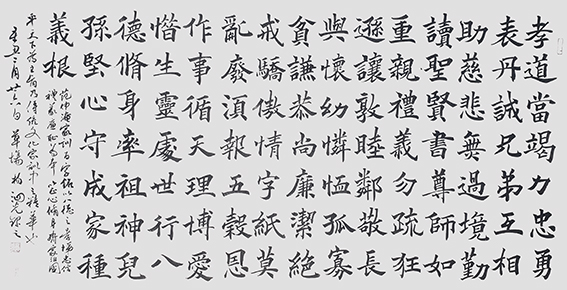 孝道當竭力忠勇
表丹誠兄弟互相
助慈悲無過境勤
讀聖賢書尊師如
重親禮義勿疏狂
遜讓敦睦鄰敬長
與懷幼憐恤孤寡
貧謙恭尚廉潔絕
戒驕傲情字紙莫
亂廢須報五穀恩
作事循天理博愛
惜生靈處世行八
德脩身率祖神兒
孫堅心守成家種
義根
范仲淹家訓百字銘
傳統文化
辛丑三月廿六日